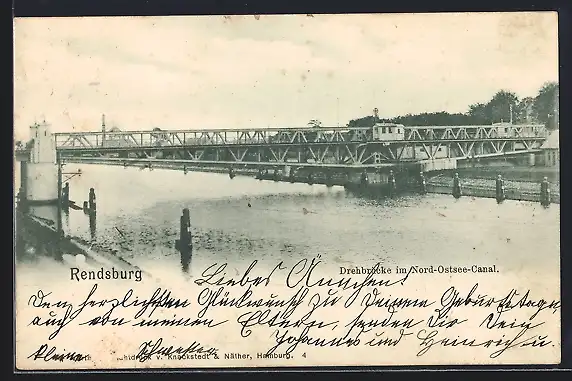 Rendsburg
Drehbrücke im Nord-Ostsee-Canal.
Liebes Änchen!
Den herzlichsten Glückwunsch zu Deinem Geburtstage,
auch von meinen Eltern, senden Dir Dein
Johannes und Heinrich u.
kleine Schwester
v. Knackstedt & Näther, Hamburg. 4